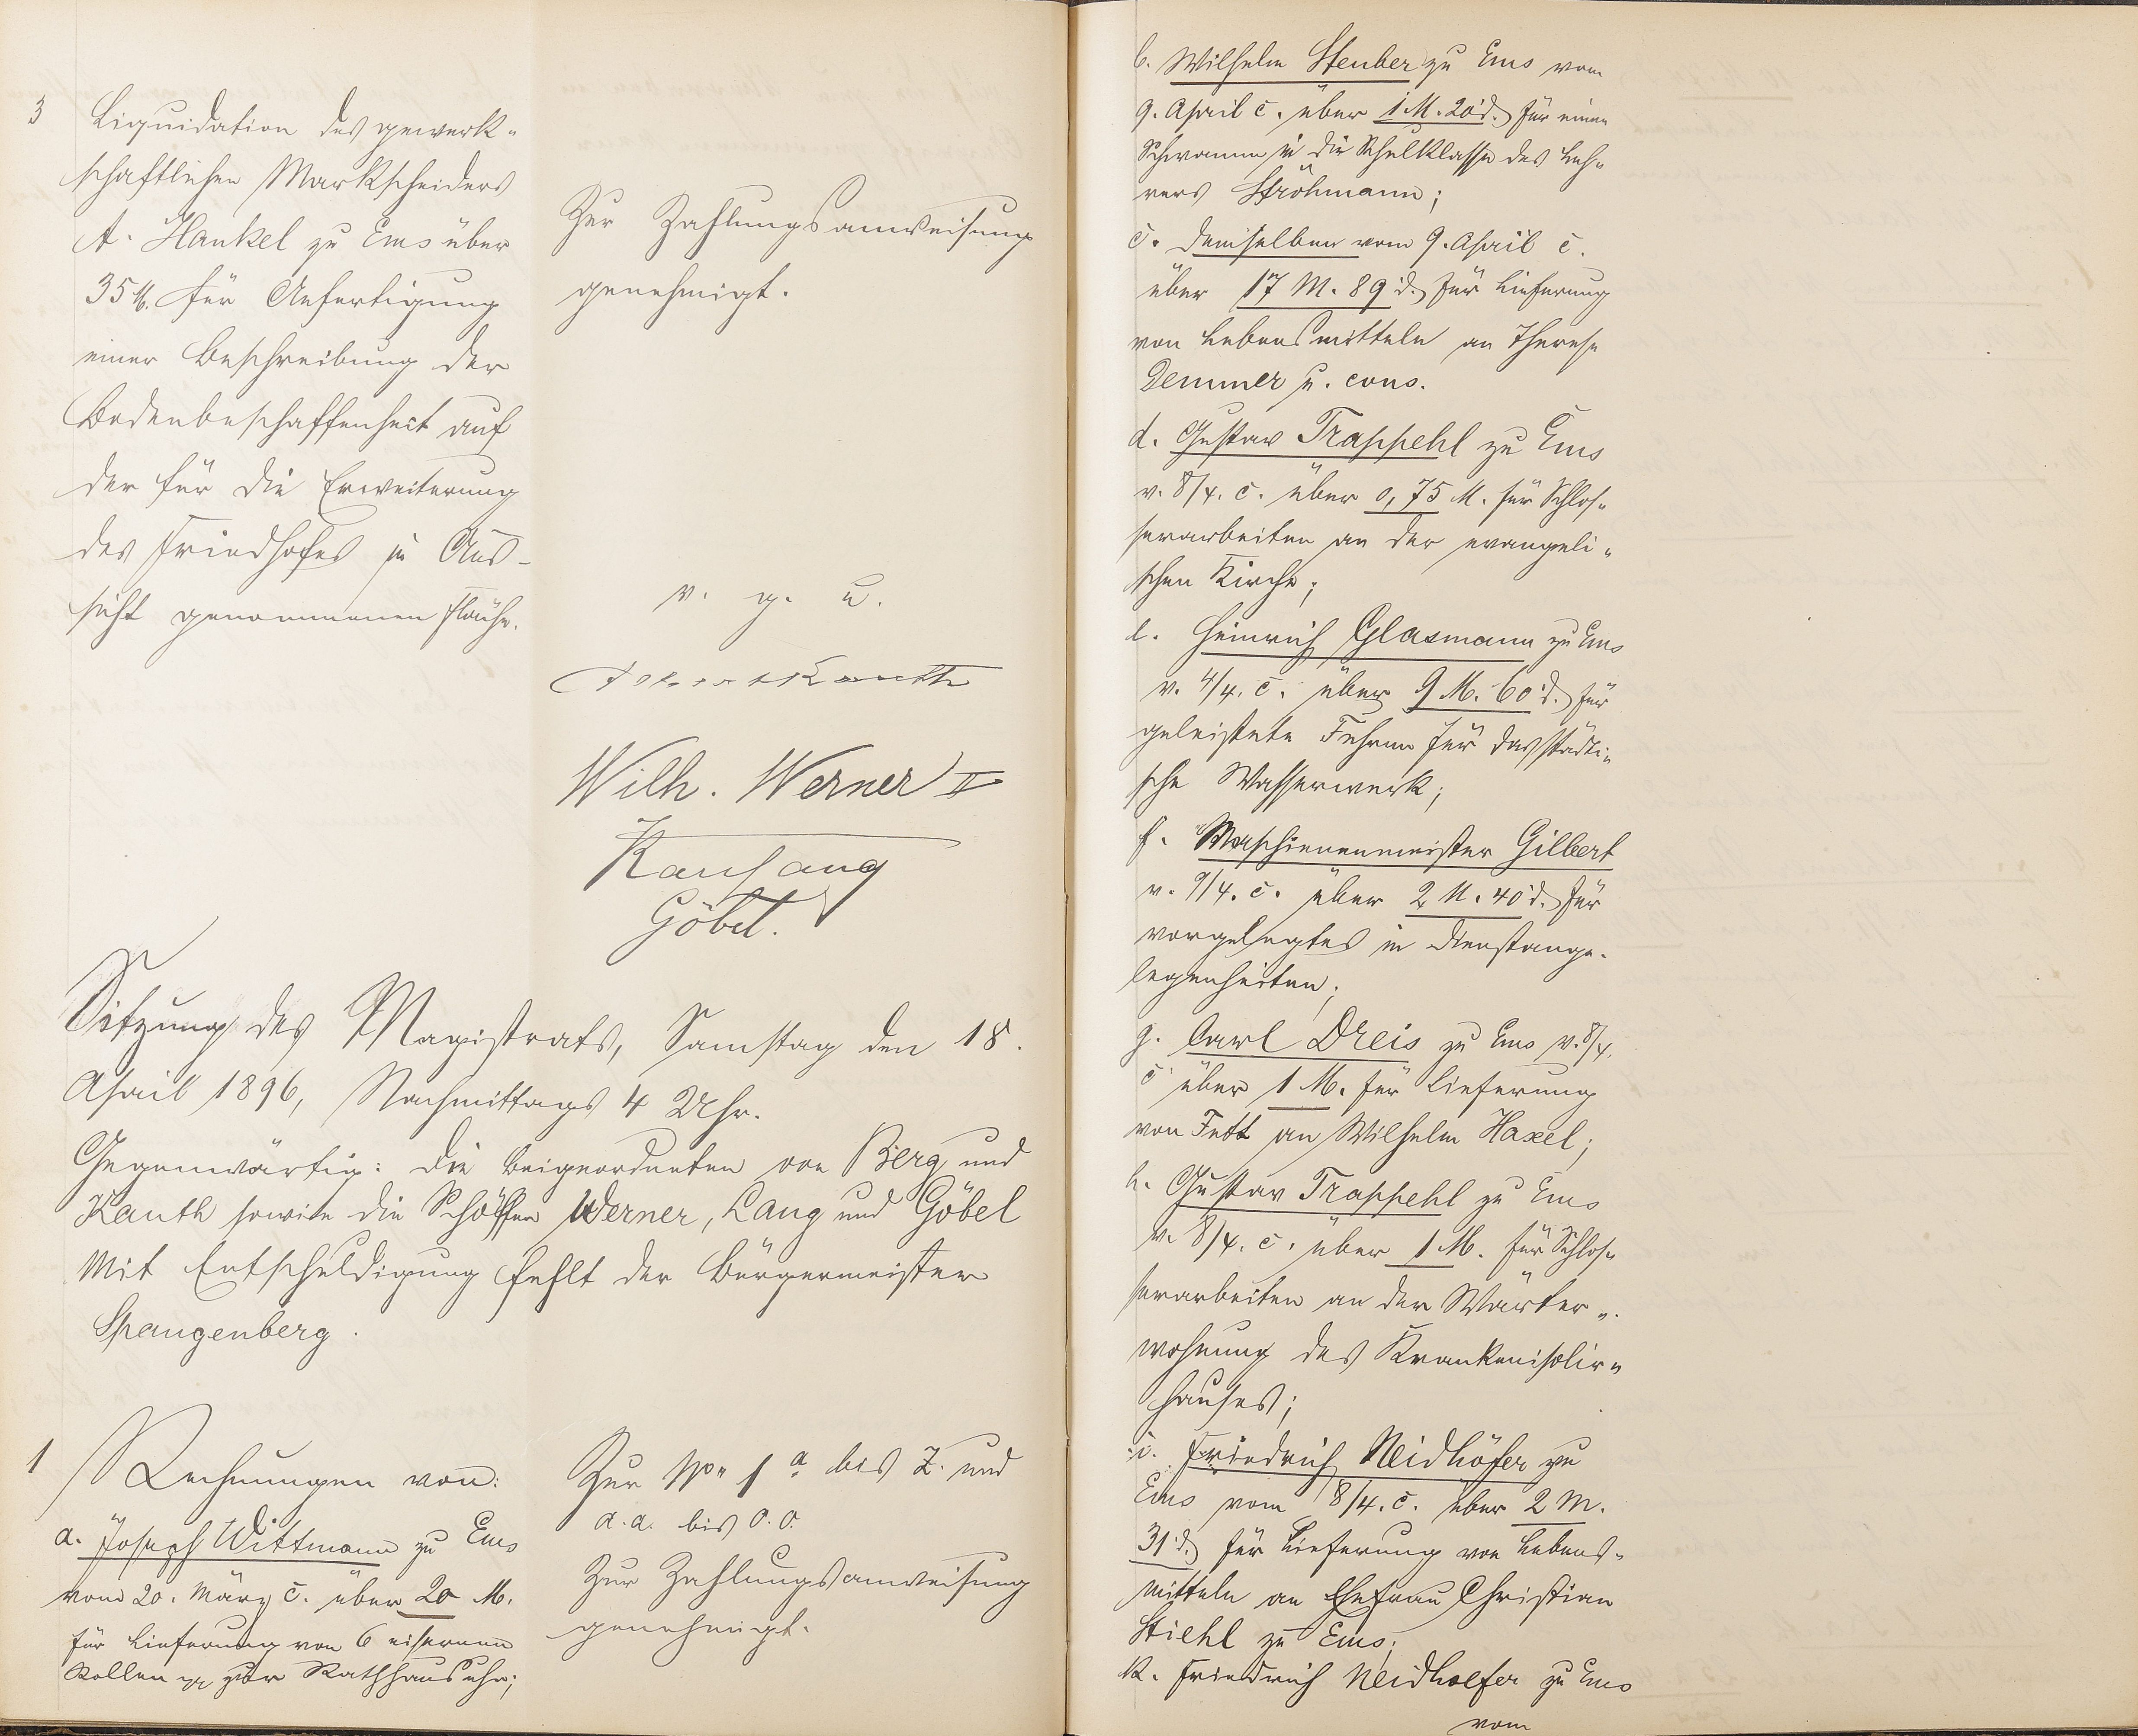 3 Liquidation des gewerk-
schaftlichen Markscheiders
A. Hankel zu Ems über
35 M. für Anfertigung
einer Beschreibung der
Bodenbeschaffenheit auf
der für die Erweiterung
des Friedhofes in Aus-
sicht genommenen Fläche.
Zur Zahlungsanweisung
genehmigt.
v. g. u.
Kauth
Wilh. Werner II
Göbel.
Sitzung des Magistrats, Samstag den 18.
April 1896, Nachmittags 4 Uhr.
Gegenwärtig: die Beigeordneten von Berg und
Kauth sowie die Schöffen Werner, Lang und Göbel
Mit Entschuldigung fehlt der Bürgermeister
Spangenberg.
1 Rechnungen von:
a. Joseph Wittmann zu Ems
vom 20. März c. über 20 M.
für Lieferung von 6 eisernen
Rollen zur Rathhausuhr;
Zur No 1 a bis Z. und
a.a. bis o.o.
Zur Zahlungsanweisung
genehmigt.
b. Wilhelm Steuber zu Ems vom
9. April c. über 1 M. 20 d. für einen
Schwamm in die Schulklasse des Leh-
rers Ströhmann;
c. Demselben vom 9. April c.
über 17 M. 89 d. für Lieferung
von Lebensmitteln an Therese
Demmer u. cons.
d. Gustav Trappehl zu Ems
v. 8/4. c. über 0,75 M. für Schlos-
serarbeiten an der evangeli-
schen Kirche;
e. Heinrich Glasmann zu Ems
v. 4/4. c. über 9 M. 60 d. für
geleistete Fuhren für das städti-
sche Wasserwerk;
f. Maschienenmeister Gilbert
v. 9/4. c. über 2 M. 40 d. für
vorgelegtes in Dienstange-
legenheiten;
g. Carl Dreis zu Ems v. 8/4.
c über 1 M. für Lieferung
von Fett an Wilhelm Haxel;
h. Gustav Trappehl zu Ems
v. 8/4. c. über 1 M. für Schlos-
serarbeiten an der Wärter-
wohnung des Krankenisolir-
hauses;
i. Friedrich Neidhöfer zu
Ems vom 8/4. c. über 2 M.
31 d. für Lieferung von Lebens-
mitteln an Ehefrau Christian
Stiehl zu Ems;
k. Friedrich Neidhoefer zu Ems
vom